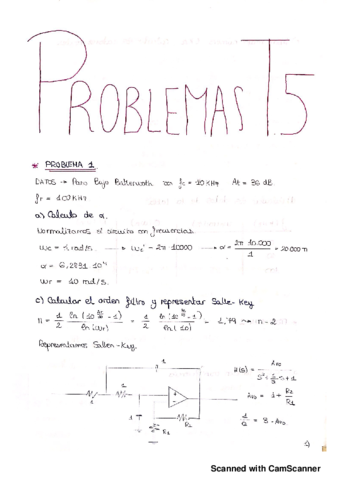 PROBLEMAS T.5
* PROBLEMA 1
DATOS → Paso Bajo Butterworth con fc = 10 KHz At = 36 dB.
fr = 100 KHz
a) Calculo de α.
Normalizamos el circuito con frecuencias
ωc = 1 rad/s. → ωc' = 2π 10000 → α = 2π 10.000 / 1 = 20.000 π
α = 6,2831 10⁴
ωr = 10 rad/s.
c) Calcular el orden filtro y representar Sallen-Key.
n = 1/2 ln(10 -1) / ln(ωr) = 1/2 ln(10 -1) / ln(10) = 1,79 → n = 2
Representamos Sallen-Key.
1
H(s) = Avo / s² + 1/Q s + 1
1 1
Avo = 1 + R2/R1
1/Q = 3 - Avo
R2
R1
Scanned with CamScanner